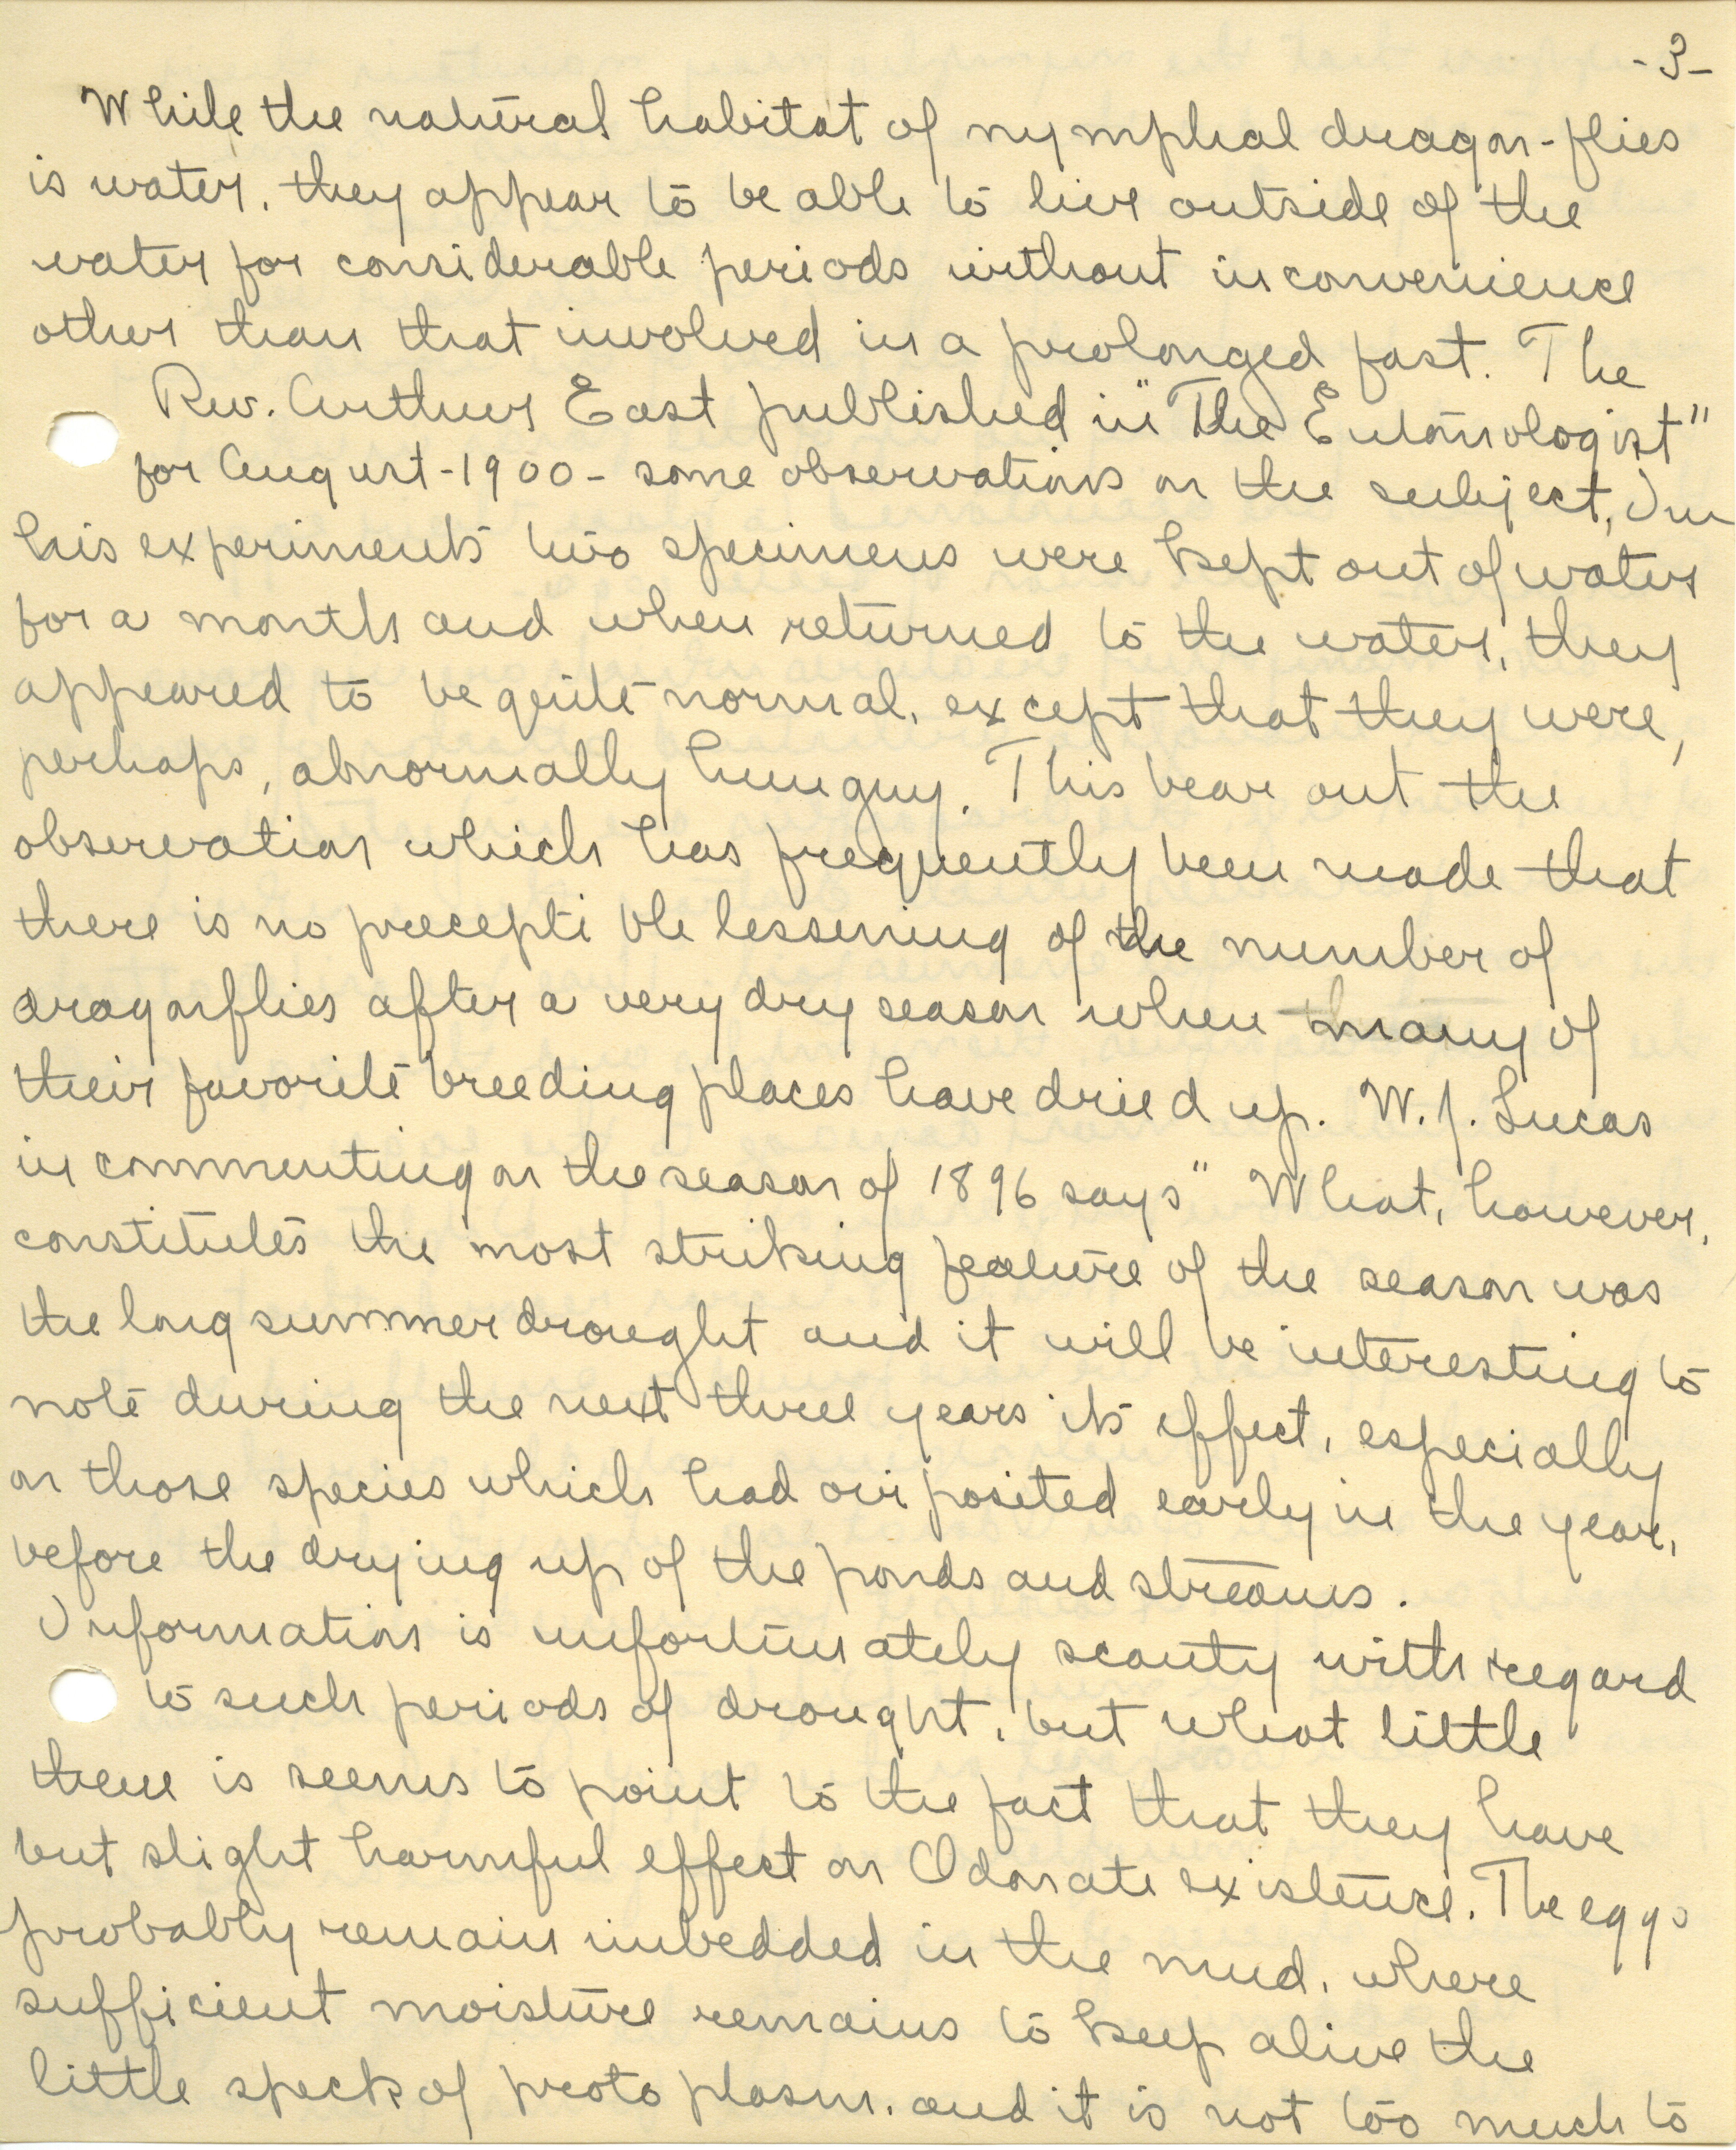 -3-
While the natural habitat of nymphal dragon-flies
is water, they appear to be able to live outside of the
water for considerable periods without inconvenience
other than that involved in a prolonged fast. The
Rev. Arthur East published in "The Entomologist"
for August-1900- some observations on the subject, In
his experiments two specimens were kept out of water
for a month and when returned to the water, they
appeared to be quite normal, except that they were,
perhaps, abnormally hungry. This bear out the
observation which has frequently been made that
there is no precepti ble lessening of the number of
dragonflies after a very dry season when many of
their favorite breeding places have dried up. W.J. Lucas
in commenting on the season of 1896 says " What, however,
constitutes the most striking feature of the season was
the long summer drought and it will be interesting to
note during the next three years its effect, especially
on those species which had oviposited early in the year,
before the drying up of the ponds and streams.
Information is unfortunately scanty with regard
to such periods of drought, but what little
there is seems to point to the fact that they have
but slight harmful effect on Odonate existence. The eggs
probably remain imbedded in the mud, where
sufficient moisture remains to keep alive the
little speck of protoplasm, and it is not too much to